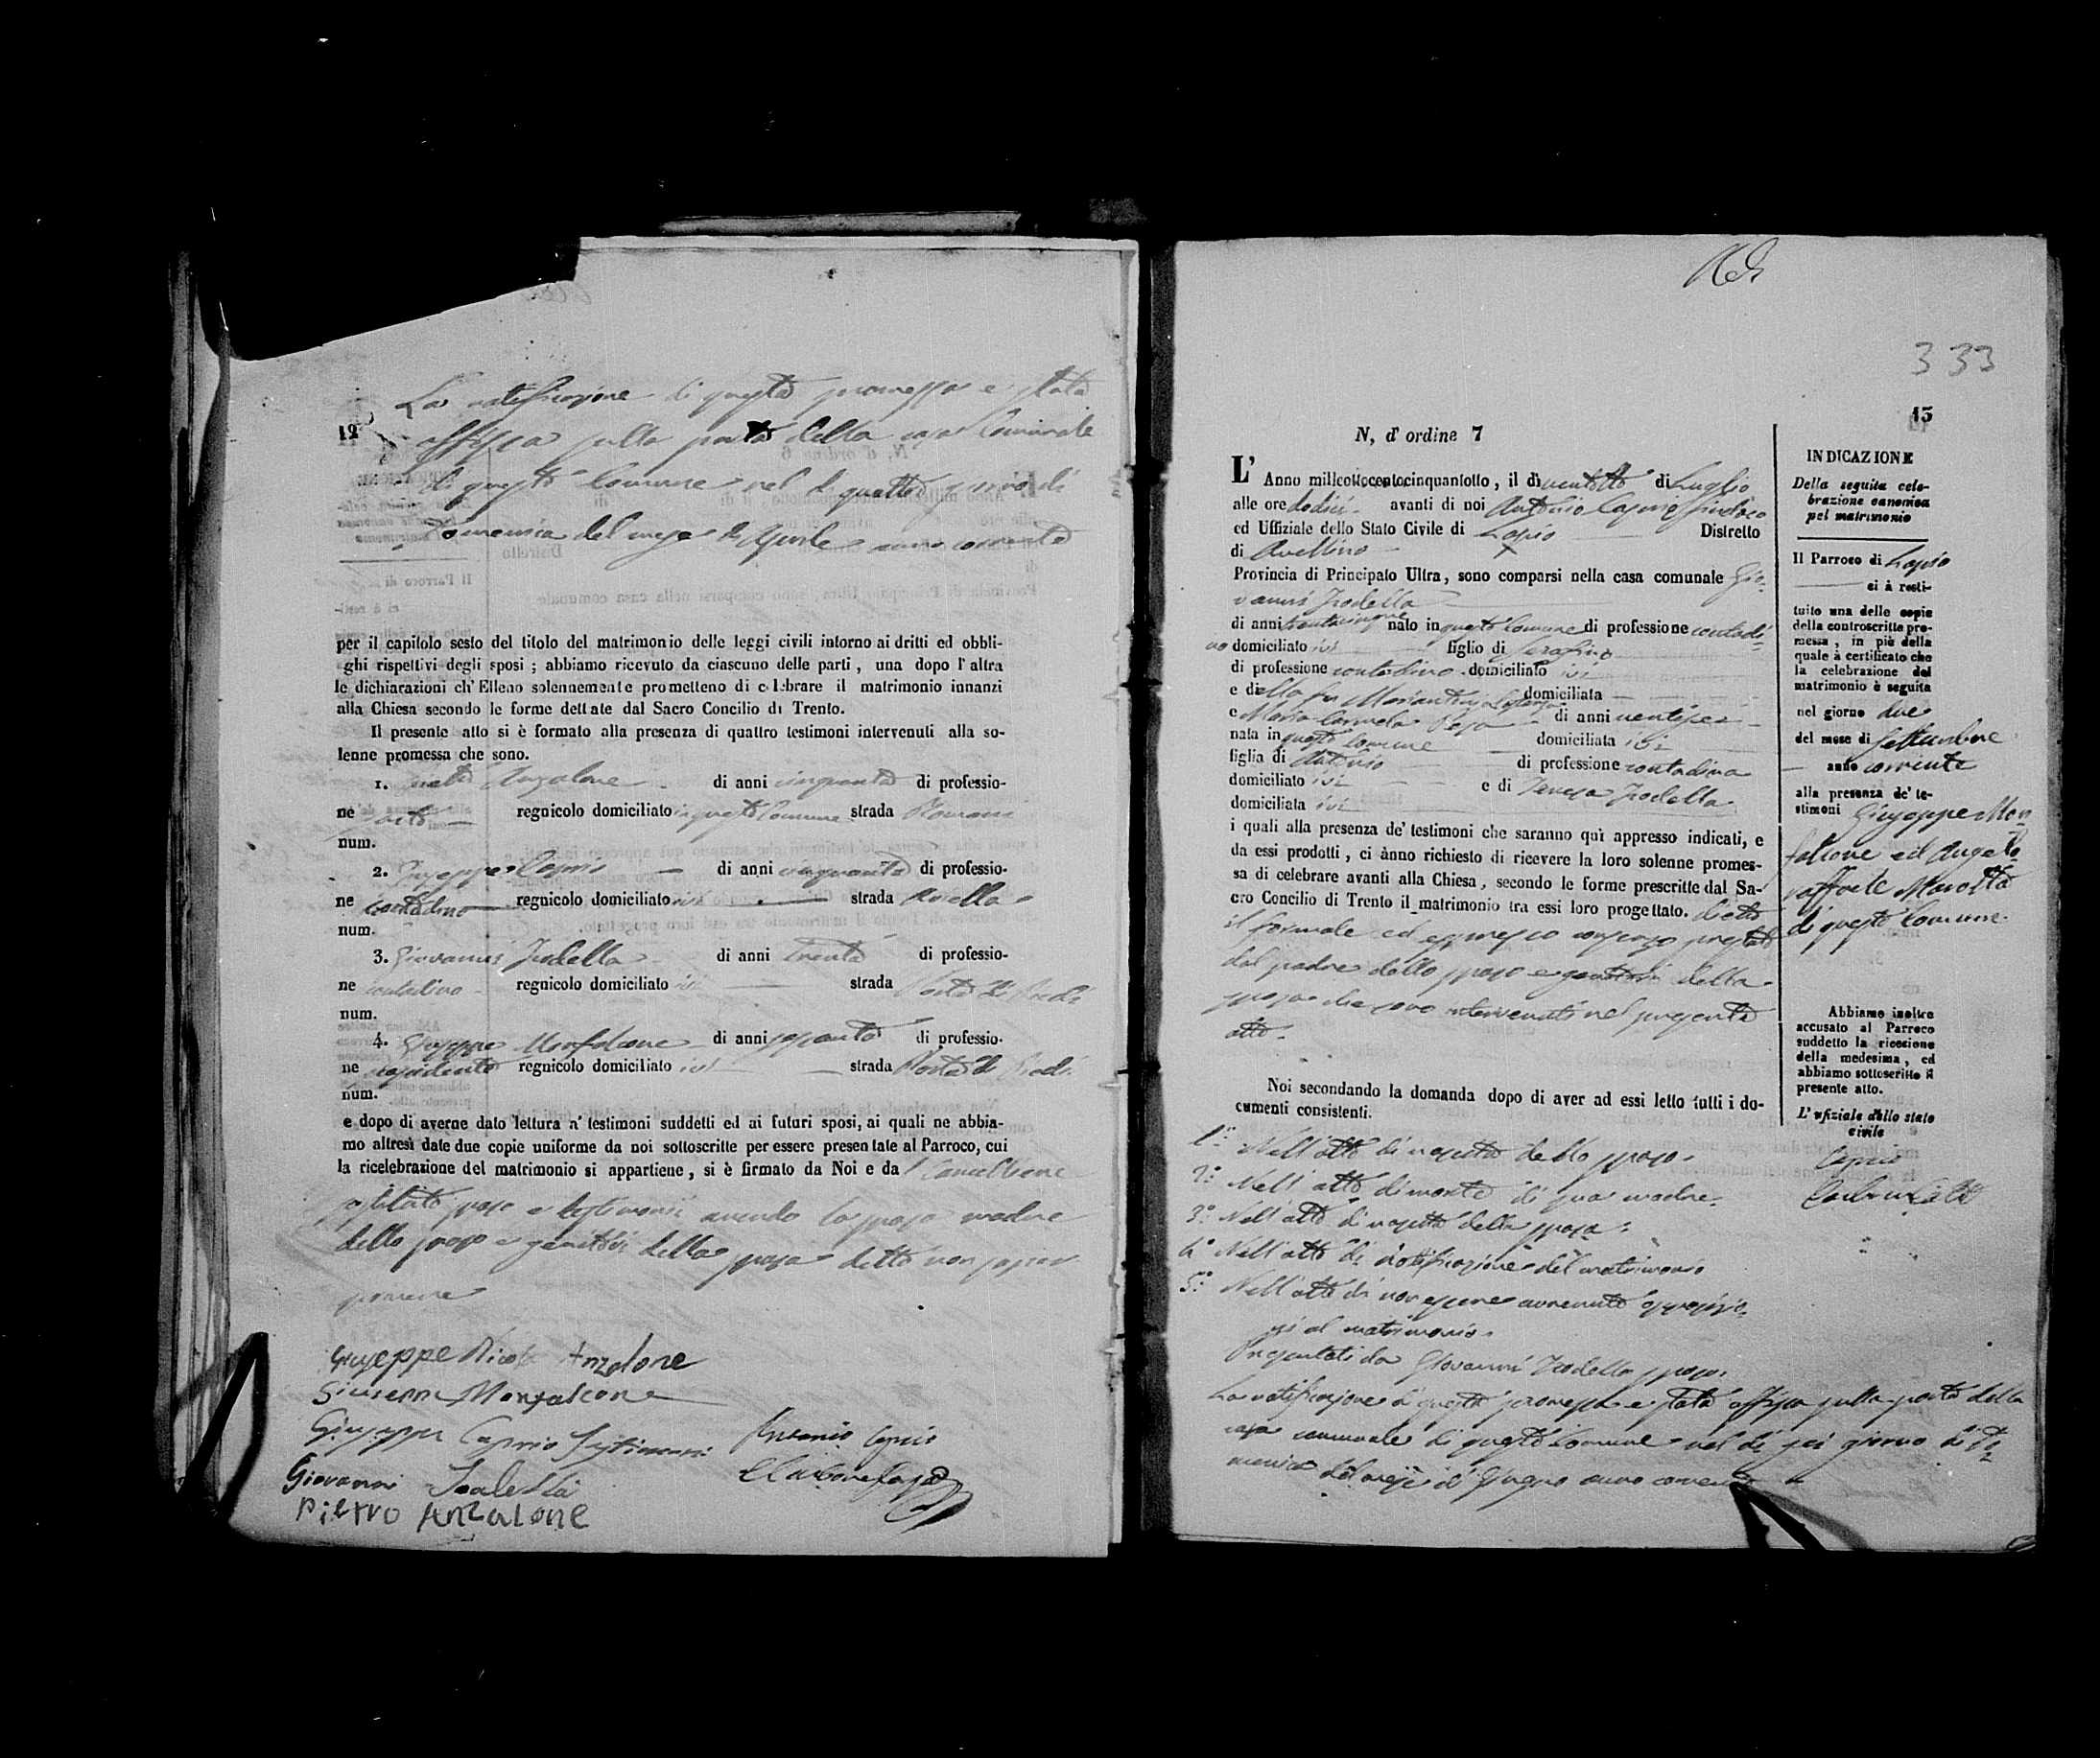 12
La notificazione di questa promessa è stata
affissa sulla porta della casa Comunale
di questo Comune nel dì quattro giorno di
Domenica del mese di Aprile anno corrente
per il capitolo sesto del titolo del matrimonio delle leggi civili intorno ai dritti ed obbli-
ghi rispettivi degli sposi ; abbiamo ricevuto da ciascuno delle parti , una dopo l' altra
le dichiarazioni ch' Elleno solennemente promettono di celebrare il matrimonio innanzi
alla Chiesa secondo le forme dettate dal Sacro Concilio di Trento.
Il presente atto si è formato alla presenza di quattro testimoni intervenuti alla so-
lenne promessa che sono.
1. Anzalone di anni cinquanta di professio-
ne sarto regnicolo domiciliato in questo Comune strada
num.
2. Giuseppe Caprio di anni cinquanta di professio-
ne contadino regnicolo domiciliato ivi strada
num.
3. Giovanni Iodella di anni trenta di professio-
ne contadino regnicolo domiciliato ivi strada Porta di
num.
4. Giuseppe Monfalcone di anni sessanta di professio-
ne regnicolo domiciliato ivi strada Porta di
num.
e dopo di averne dato lettura a' testimoni suddetti ed ai futuri sposi, ai quali ne abbia-
mo altresì date due copie uniforme da noi sottoscritte per essere presentate al Parroco, cui
la ricelebrazione del matrimonio si appartiene , si è firmato da Noi e da l Cancelliere
sostituto sposo e testimoni avendo la sposa madre
dello sposo e genitori della sposa detto non saper
scrivere
Giuseppe Nicola Anzalone
Giuseppe Monfalcone
Giuseppe Caprio Testimoni Antonio Caprio
Giovanni
Pietro Anzalone
333
13
N, d' ordine 7
L' Anno millottocentocinquantotto , il dì ventotto di Luglio
alle ore dodici avanti di noi Antonio Caprio Sindaco
ed Uffiziale dello Stato Civile di Lapio Distretto
di Avellino
Provincia di Principato Ultra , sono comparsi nella casa comunale Gio-
vanni Iodella
di anni trentacinque nato in questo Comune di professione contadi-
no domiciliato ivi figlio di Serafino
di professione contadino domiciliato ivi
e della fu Mariantonia domiciliata
e Maria Carmela di anni ventisei
nata in questo Comune domiciliata ivi
figlia di Antonio di professione contadina
domiciliato ivi e di Teresa Iodella
domiciliata ivi
i quali alla presenza de' testimoni che saranno quì appresso indicati, e
da essi prodotti , ci ànno richiesto di ricevere la loro solenne promes-
sa di celebrare avanti alla Chiesa , secondo le forme prescritte dal Sa-
cro Concilio di Trento il matrimonio tra essi loro progettato. dietro
il formale ed espresso consenso prestato
dal padre dello sposo e genitori della
sposa che sono intervenuti nel presente
atto.
Noi secondando la domanda dopo di aver ad essi letto tutti i do-
cumenti consistenti.
1.° Nell'atto di nascita dello sposo.
2.° Nell'atto di morte di sua madre.
3.° Nell'atto di nascita della sposa.
4.° Nell'atto di notificazione del matrimonio
5.° Nell'atto di non essere avvenuto opposizio-
ni al matrimonio.
Presentati da Giovanni Iodella sposo.
La notificazione di questa promessa è stata affissa sulla porta della
casa comunale di questo Comune nel dì sei giorno di Do-
menica del mese di Giugno anno corrente
INDICAZIONE
Della seguita cele-
brazione canonica
pel matrimonio
Il Parroco di Lapio
ci à resti-
tuito una delle copie
della controscritta pro-
messa , in piè della
quale à certificato che
la celebrazione del
matrimonio è seguita
nel giorno due
del mese di Settembre
anno corrente
alla presenza de' te-
stimoni Giuseppe Mon
falcone ed Angelo
raffaele Marotta
di questo Comune.
Abbiamo inoltre
accusato al Parroco
suddetto la ricezione
della medesima , ed
abbiamo sottoscritto il
presente atto.
L' ufiziale dello stato
civile
Caprio